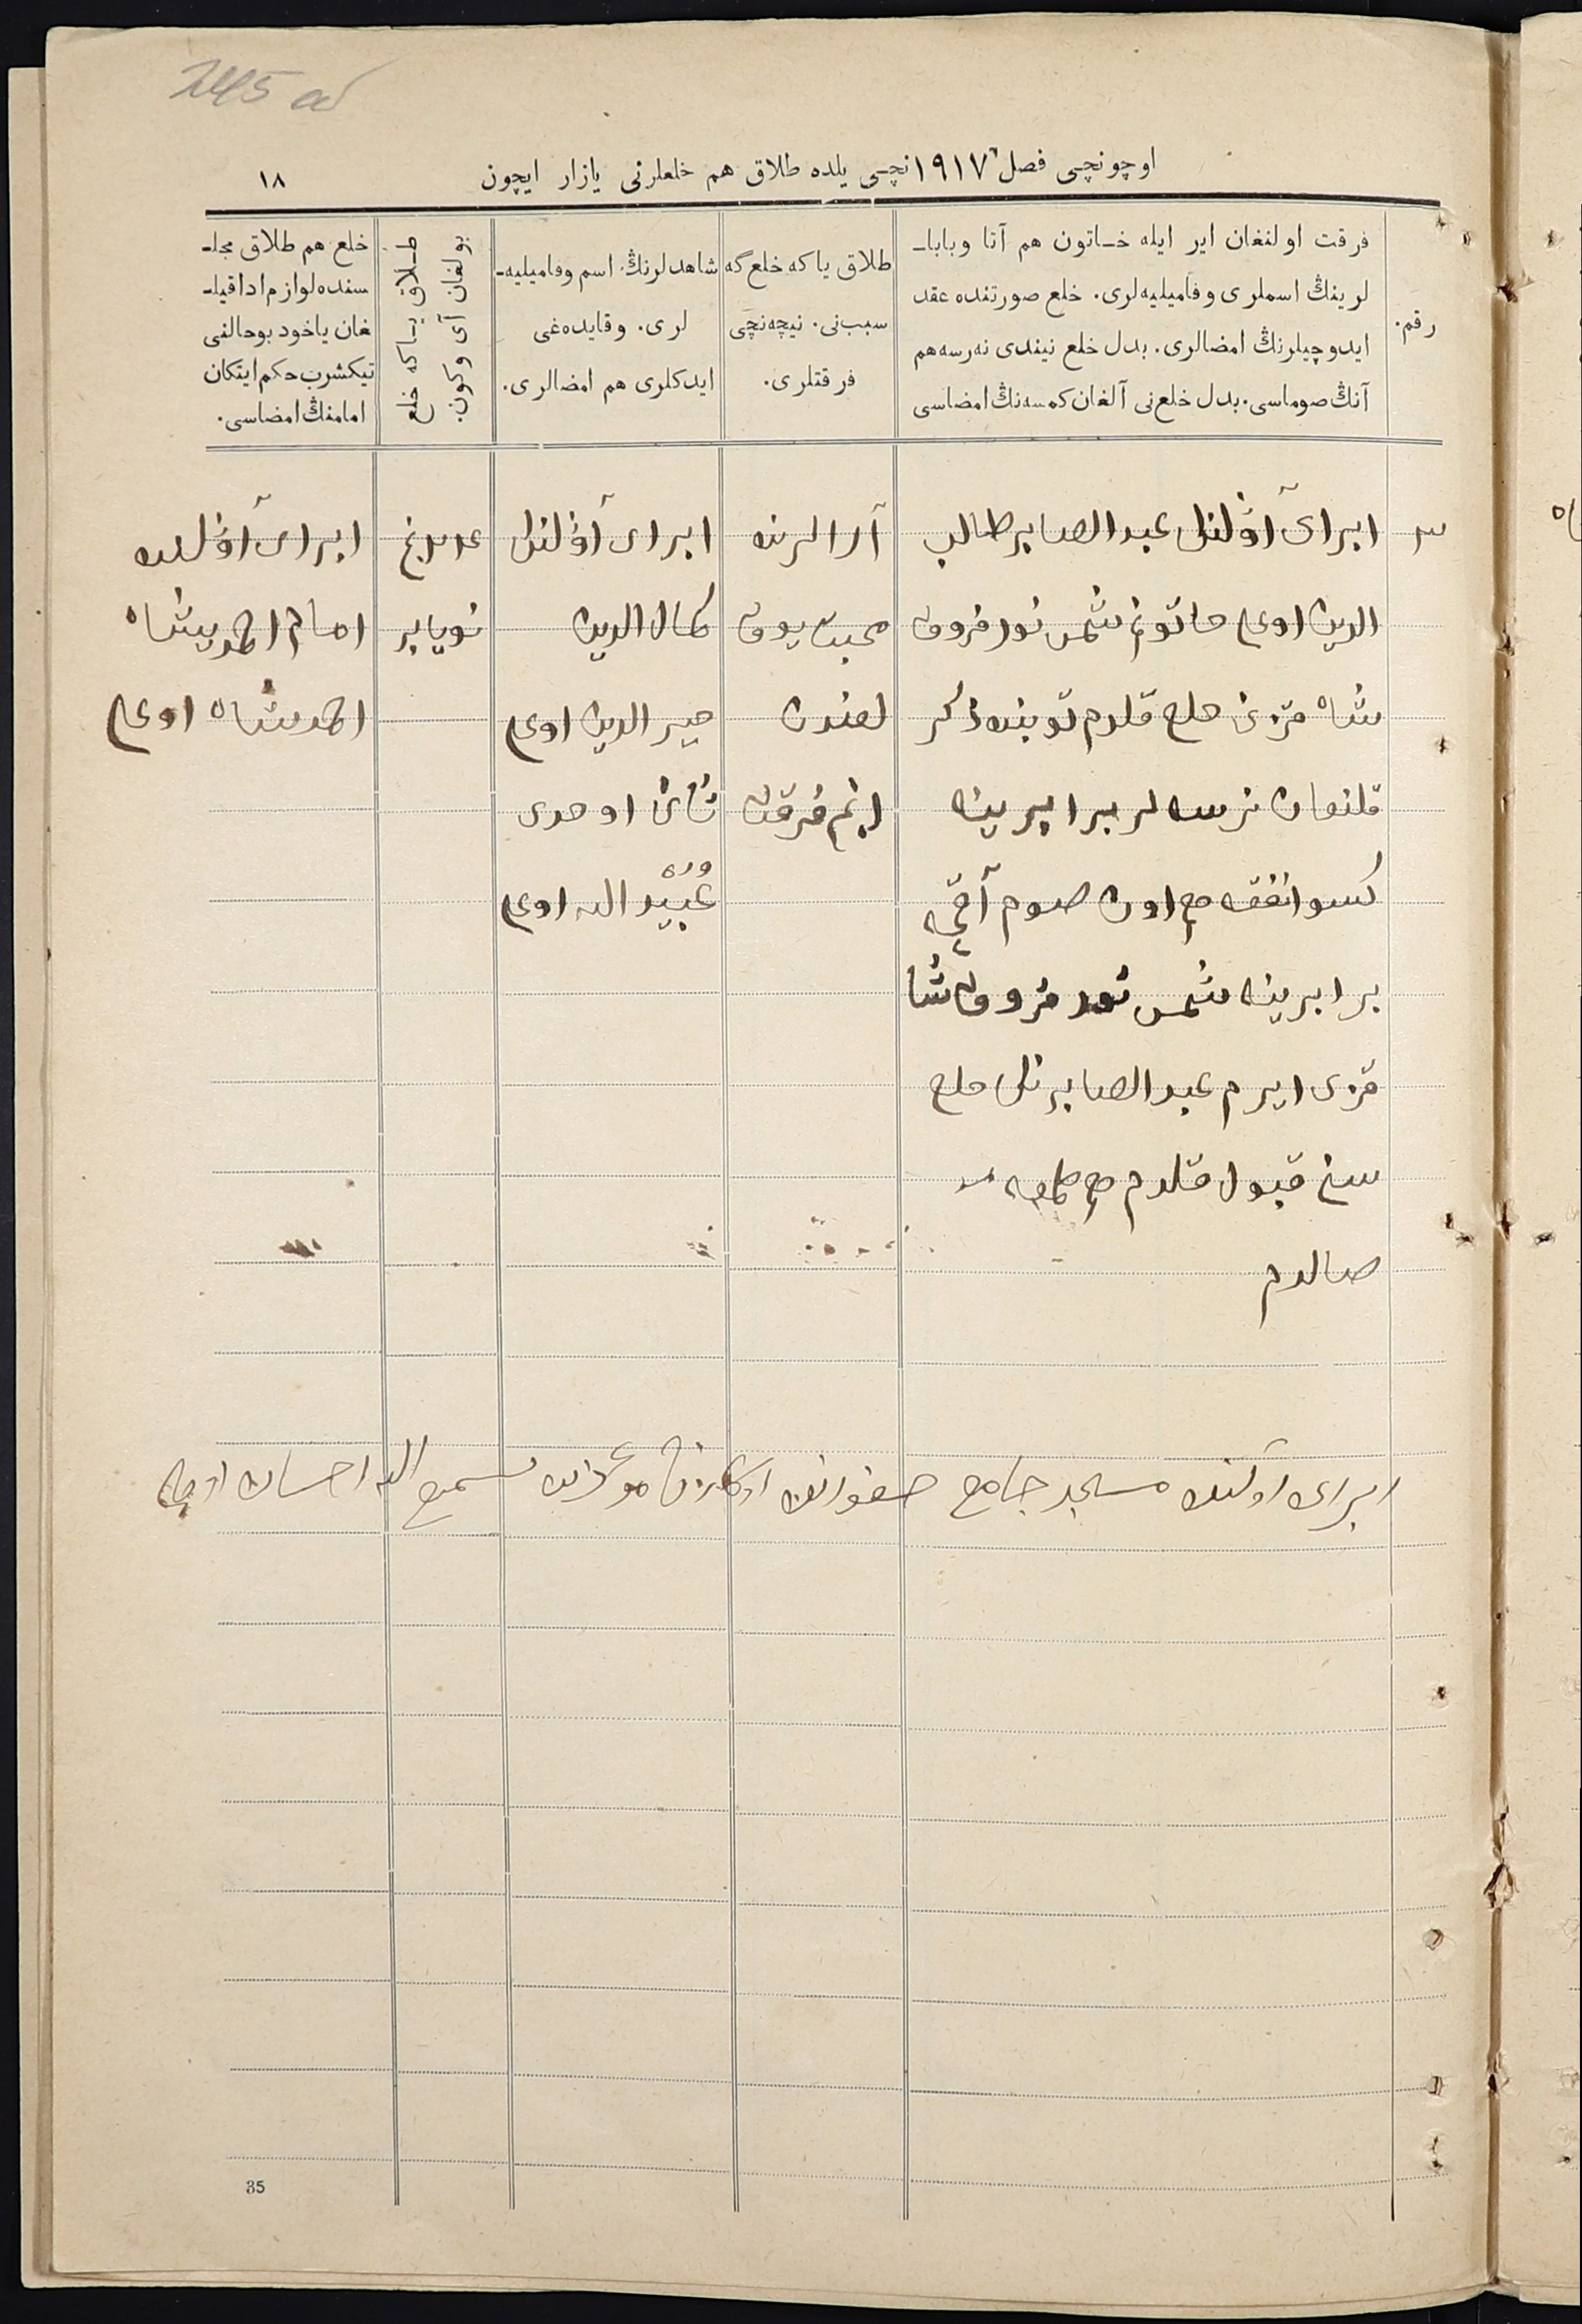 245 об
اوچونچی فصل ١٩١٧ نچی یلده طلاق هم خلعلرنی یازار ایچون
١٨
رقم.
فرقت اولنغان ایر ایله خاتون هم آتا وبابا-
لرینڭ اسملری وفامیلیه‌لری. خلع صورتنده عقد
ایدوچیلرنڭ امضالری. بدل خلع نیندی نه‌رسه هم
آنڭ صوماسی. بدل خلعنی آلغان کمسه‌نڭ امضاسی
طلاق یاکه خلع گه
سببنی. نیچه‌نچی
فرقتلری.
شاهدلرنڭ اسم وفامیلیه-
لری. وقایده‌غی
ایدکلری هم امضالری.
طلاق یاکه خلع
بولغان آی وکون.
خلع هم طلاق مجل-
سنده لوازم ادا قیل-
غان یاخود بوحالنی
تیکشرب حکم ایتکان
امامنڭ امضاسی.
٣
ایرای آولنڭ عبد الصابر طالب
الدین اوعلی خاتونم شمس نور فروق
شاه قزی خلع قلدم توبنده ذکر
قلنغان نرسه لر برابرینه
کسوا نفقه مع اون صوم آقچه
برابرینه شمس نور فروق شا
قزی ایرم عبد الصابر نڭ خلع
سن قبول قلدم
صالدم
آرالرنده
محبت یوق
لغندن
فرقت
ایرای آولنڭ
کمال الدین
اوعلی
اوحدی
عبید الله اوعلی
نویابر
ایرای آولنده
امام احمدیشاه
احمدشاه اوعلی
ایرای آولنده مسجد جامع سمیع الله احسان اوعلی
35